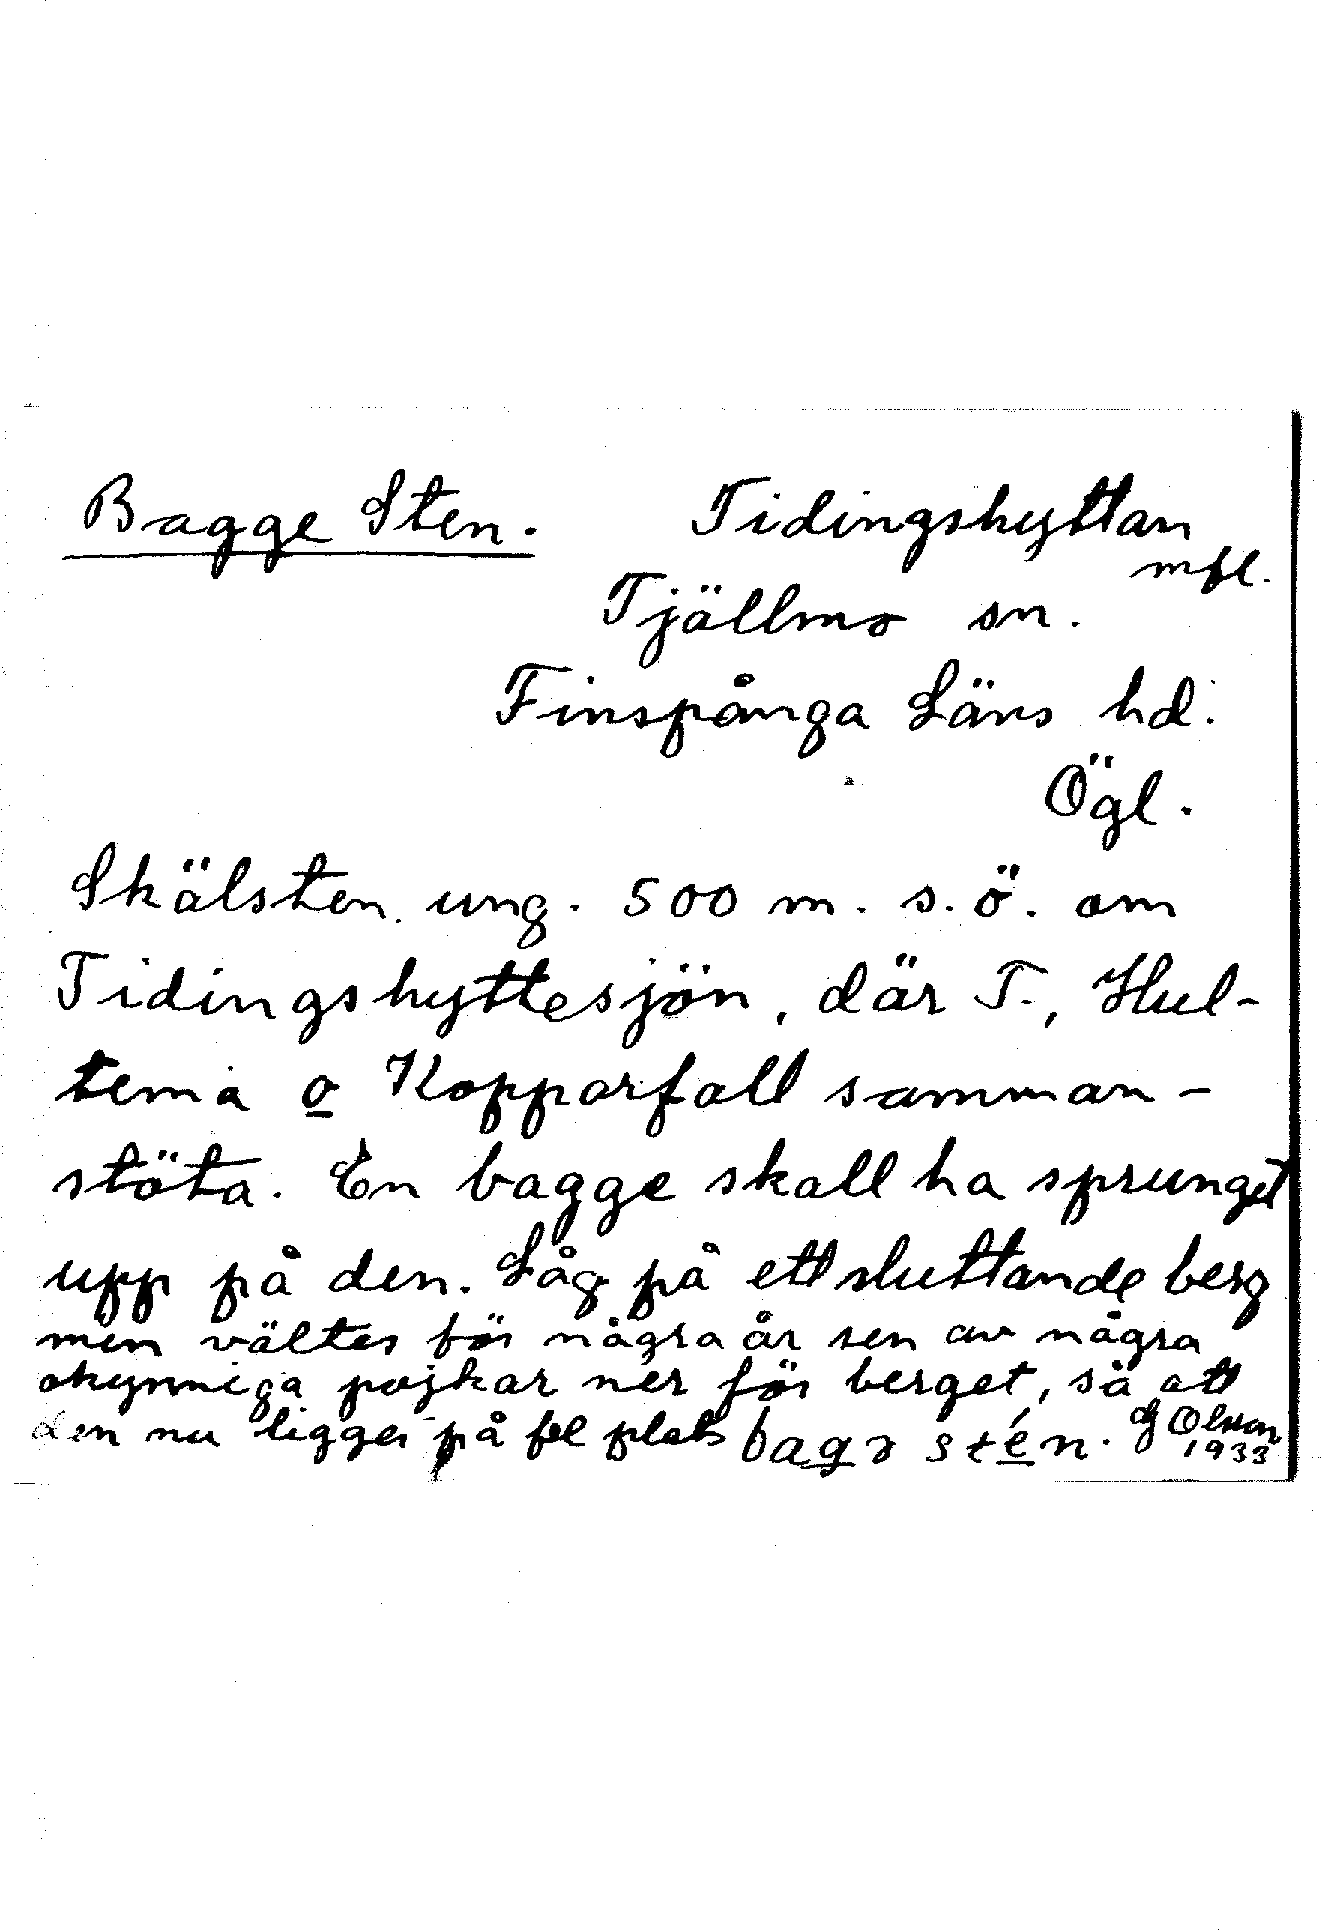 Bagge Sten. Tidingshyttan
mfl.
Tjällmo sn.
Finspånga Läns hd.
Ögl.
Skälsten. ung. 500 m. s.ö. om
Tidingshyttesjön, där T., Hul-
tema o Kopparfall samman-
stöta. En bagge skall ha sprunget
upp på den. Låg på ett sluttande berg
men vältes för några år sen av några
okynniga pojkar ner för berget, så att
den nu ligger på fel plats bagə stén. G Olsson
1933